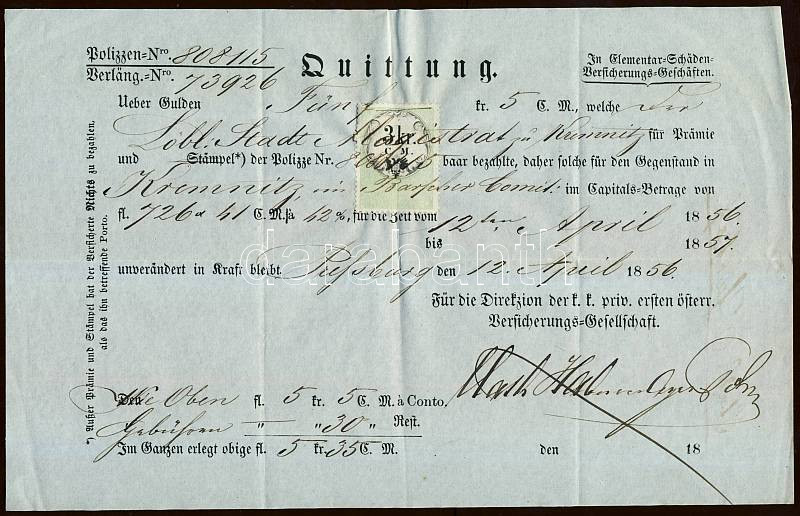 Polizzen=Nro. 808115
Verläng.=Nro. 73926
Quittung.
In Elementar=Schäden=
Versicherungs=Geschäften.
Ueber Gulden Fünf kr. 5 C. M., welche Der
Löbl. Stadt Magistrat zu Kremnitz für Prämie
3 kr.
C. M.
und Stämpel*) der Polizze Nr. baar bezahlte, daher solche für den Gegenstand in
Kremnitz, im Barscher Comit: im Capitals=Betrage von
fl. 726 41 C. M. à 42 %, für die Zeit vom 12ten April 1856.
bis 1857.
unverändert in Kraft bleibt. Preßburg den 12. April 1856.
Für die Direkzion der k. k. priv. ersten österr.
Versicherungs=Gesellschaft.
Wie Oben fl. 5 kr. 5 C. M. à Conto.
Gebühren — „ 30 „ Rest.
Im Ganzen erlegt obige fl. 5 kr. 35 C. M.
den 18
*) Außer Prämie und Stämpel hat der Versicherte Nichts zu bezahlen,
als das ihn betreffende Porto.
darabanth